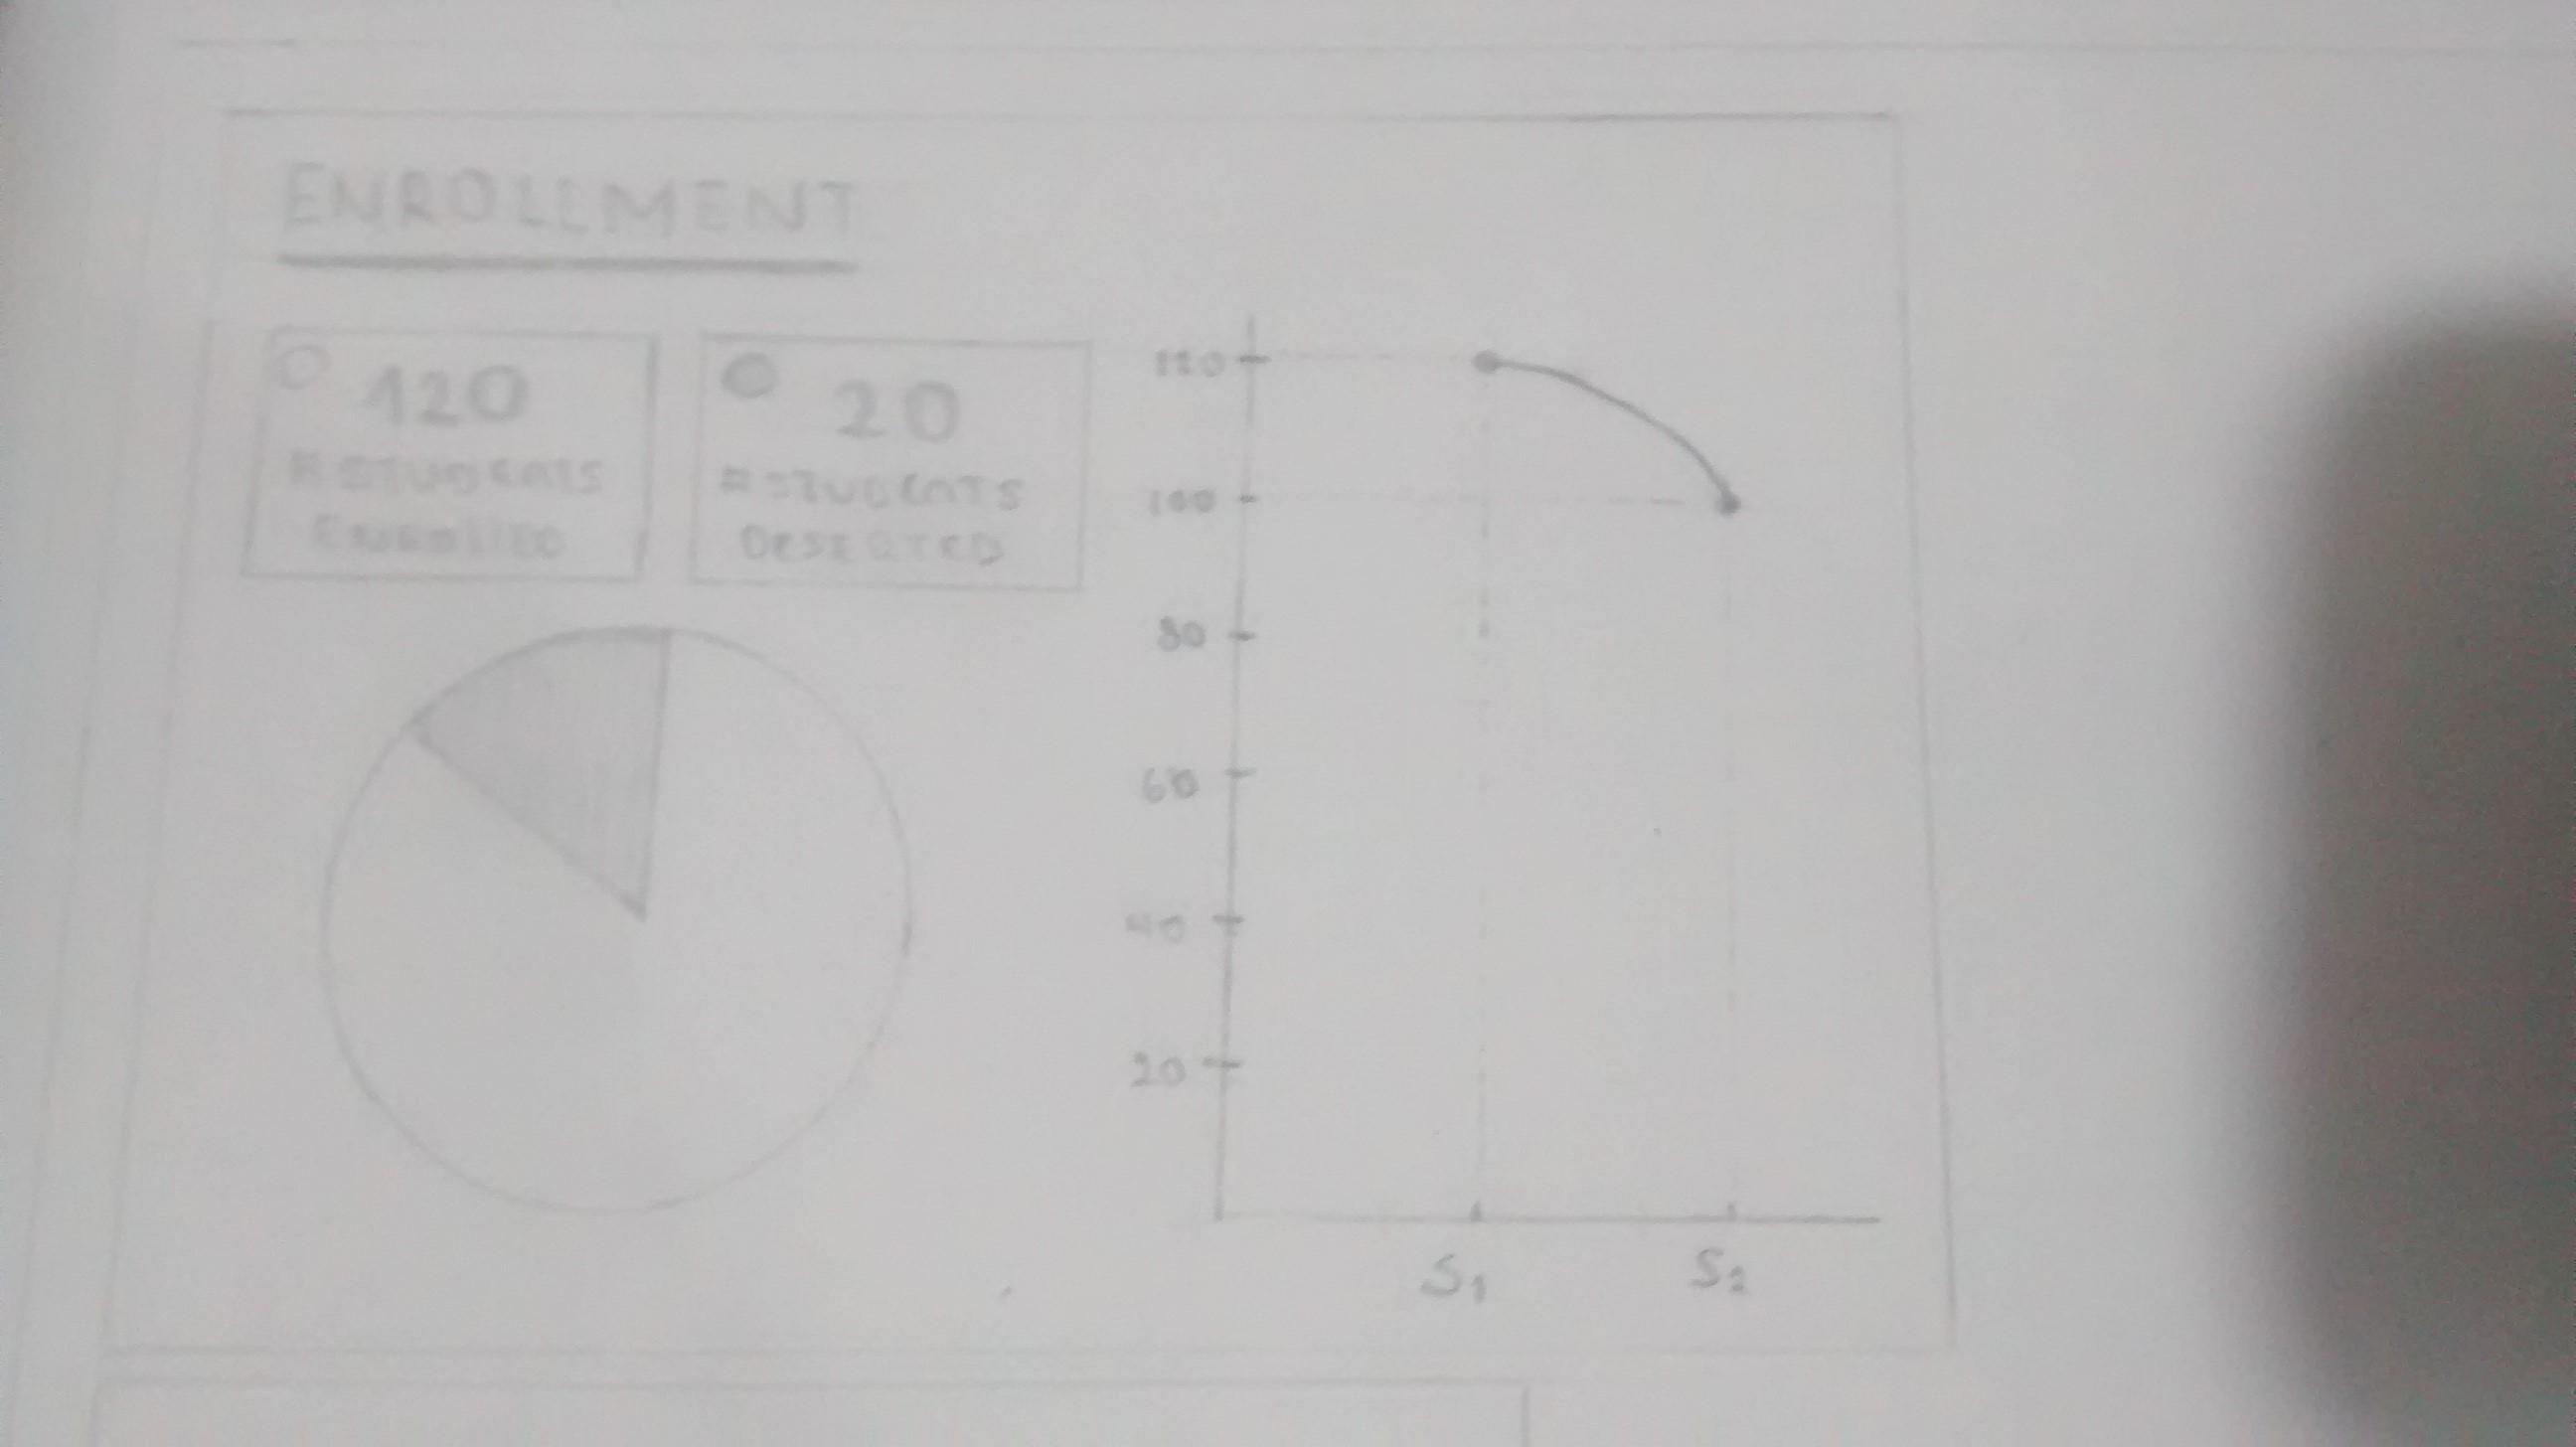 ENROLLMENT
120
# STUDENTS
ENROLLED
20
# STUDENTS
DESERTED
120
100
80
60
40
20
S1
S2